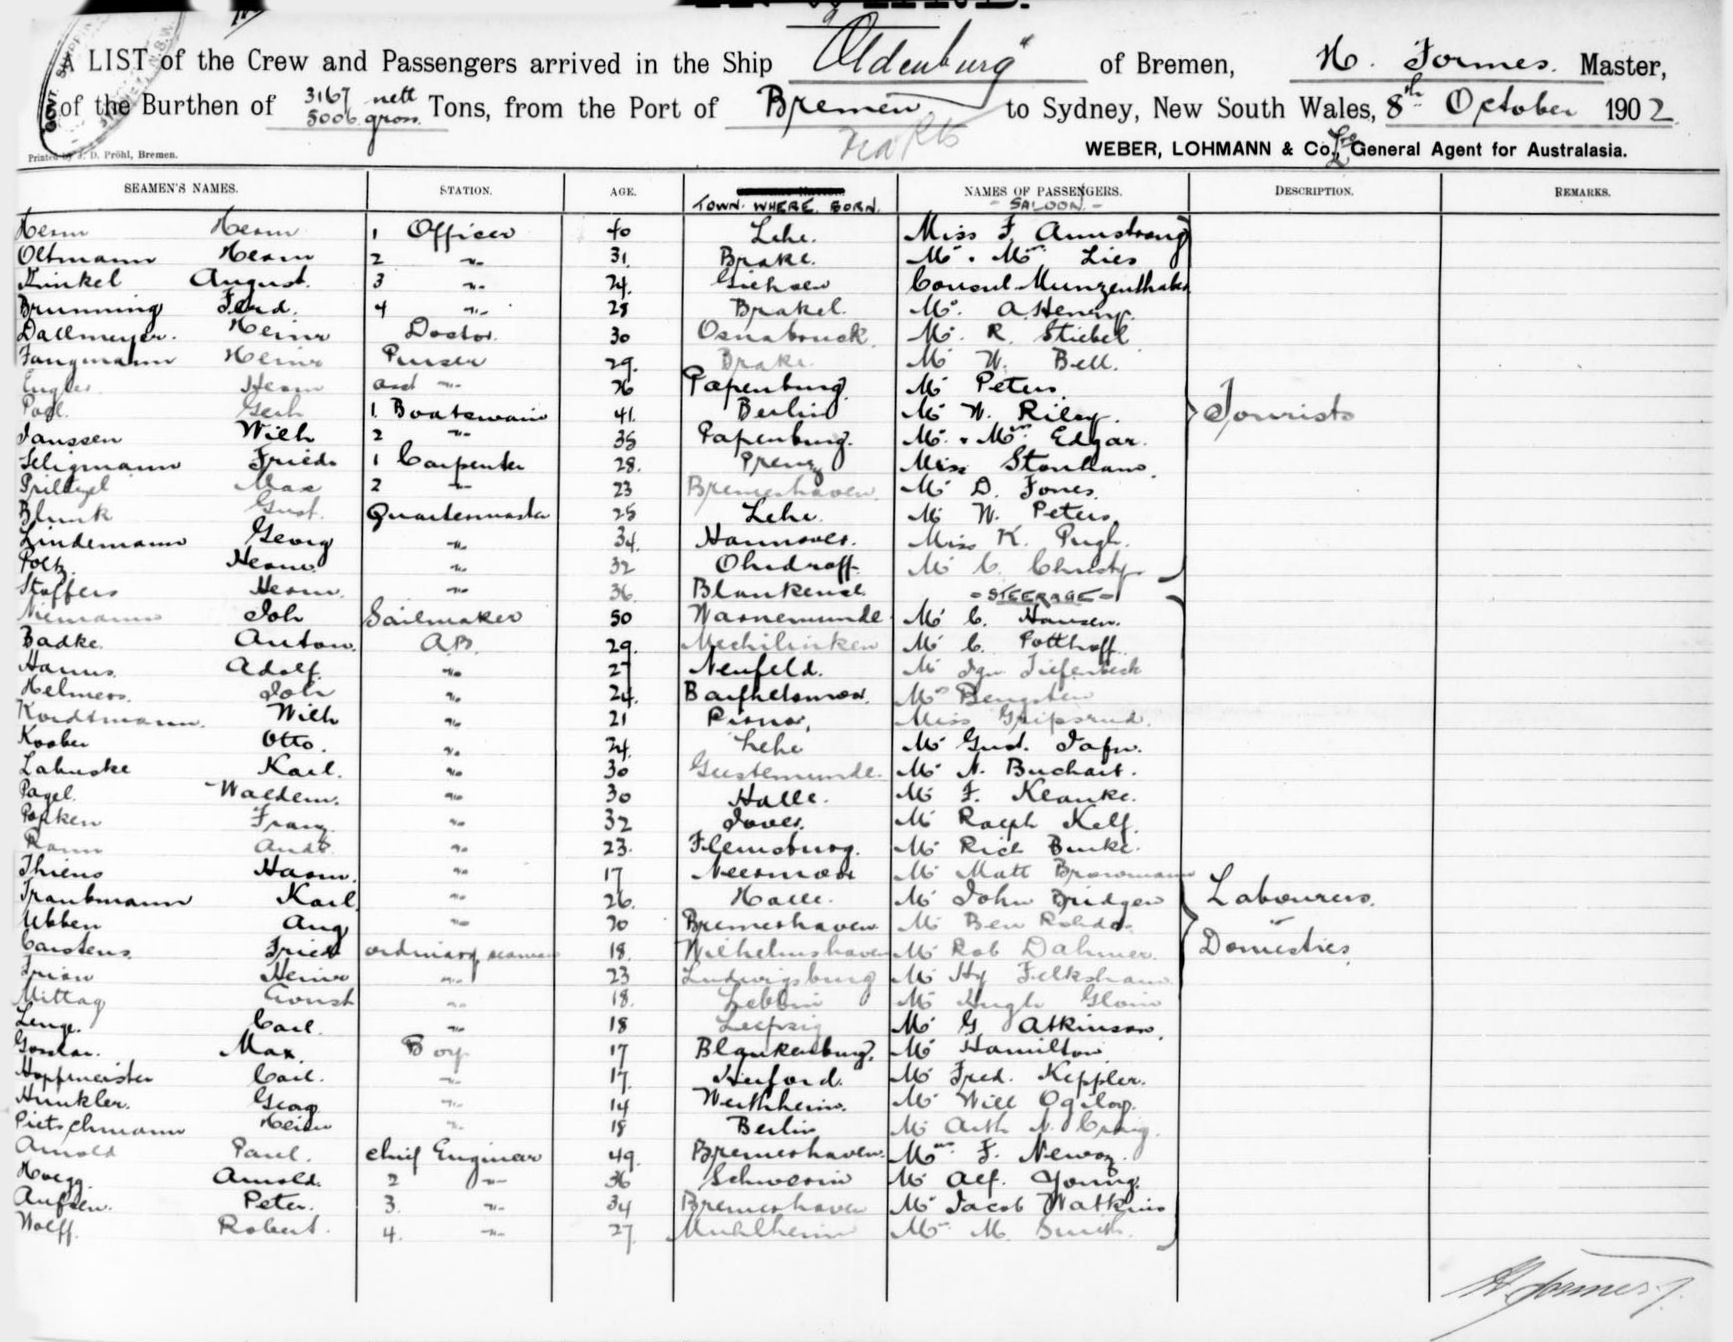 A LIST of the Crew and Passengers arrived in the Ship "Oldenburg" of Bremen, H. Formes. Master,
of the Burthen of 3167 nett 5006 gross. Tons, from the Port of Bremen to Sydney, New South Wales, 8th October 1902
Printed by J. D. Pröhl, Bremen.
WEBER, LOHMANN & Co., General Agent for Australasia.
SEAMEN'S NAMES. STATION. AGE. TOWN WHERE BORN. NAMES OF PASSENGERS. DESCRIPTION. REMARKS.
- SALOON -
Herm 1 Officer 40 Lehe. Miss F Armstrong
Oltmann Herm 2 " 31. Brake. Mr. & Mrs Lies
Kinkel August. 3 " 24. Giessen Consul Munzenthaler
Brunning Ferd. 4 " 28 Brakel. Mr. A. Henry.
Dallmeyer. Heinr Doctor. 30 Osnabruck. Mr. R. Stiebel
Fangmann Heinr Purser 29. Brake. Mr W. Bell.
Herm asst " 26 Papenburg. Mr Peters.
Gerh 1. Boatswain 41. Berlin Mr W. Riley. Tourists
Janssen Wilh 2 " 35 Papenburg. Mr. & Mrs Edgar.
Seligmann Friedr 1 Carpenter 28. Prenz Miss Stonham.
Max 2 " 23 Bremerhaven. Mr D. Jones.
Blunk Gust. Quartermaster 25 Lehe. Mr W. Peters
Lindemann Georg " 34. Hannover. Miss K. Pugh.
Poltz. Herm. " 32 Ohrdruff. Mr C. Christy
Stoffers Herm. " 36. Blankense. - STEERAGE -
Niemann Joh Sailmaker 50 Warnemunde Mr C. Hansen.
Badke. Anton. A.B. 29. Mechilinken Mr C. Potthoff.
Harms. Adolf. " 27 Neufeld. Mr Ign Tiefenbeck
Helmers. Joh " 24. Mrs Bengsten
Kordtmann. Wilh " 21 Pirna. Miss Gripsrud.
Koober Otto. " 24. Lehe Mr Gust. Jafn.
Labuske Karl. " 30 Geestemunde. Mr N. Buchart.
Pagel. Waldem. " 30 Halle. Mr F. Klauke.
Popken Franz " 32 Jever. Mr Ralph Kelf.
Andr. " 23. Flensburg. Mr Rich Burke.
Thiens Harm. " 17 Neermoor Mr Matt Browmann
Traubmann Karl " 26. Halle. Mr John Bridger Labourers.
Ubben Aug " 20 Bremerhaven Mr Ben Rohde. "
Carstens. Friedr ordinary seaman 18. Wilhelmshaven Mr Rob Dahmer. Domestics.
Heinr " 23 Ludwigsburg Mr Hy Felksham
Mittag Ernst " 18. Lebbin Mr Hugh Gloin
Lenge. Carl. " 18 Leipzig Mr G Atkinson.
Goslar. Max. Boy 17 Blankenburg. Mr Hamilton
Hopfmeister Carl. " 17. Herford. Mr Fred. Keppler.
Hunkler. Georg " 14 Wertheim. Mr Will Ogilvy.
Pietschmann Heinr " 18 Berlin Mr Arth N. Craig.
Arnold Paul. chief Engineer 49. Bremerhaven. Mrs F. Newon.
Hoegg. Arnold. 2 " 36 Schwerin Mr Alf. Young.
Aufsen. Peter. 3. " 34 Bremerhaven Mr Jacob Watkins
Wolff. Robert. 4. " 27 Muhlheim Mr M. Smith.
H. Formes